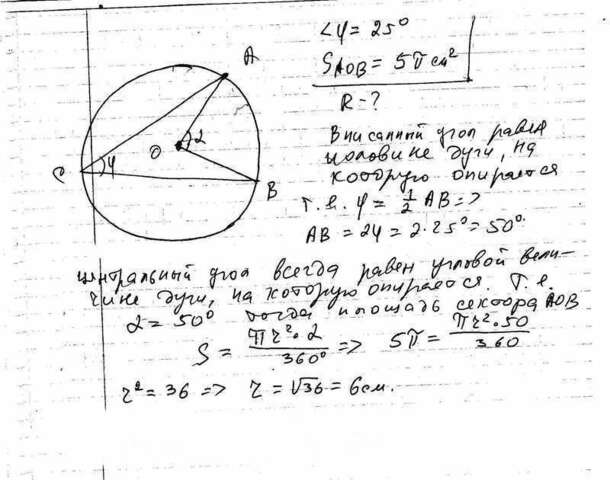 ∠φ = 25°
S AOB = 5π см²
R = ?
A
O
α
C
φ
B
Вписанный угол равен
половине дуги, на
которую опирается
т.е. φ = 1/2 AB =>
AB = 2φ = 2·25° = 50°.
Центральный угол всегда равен угловой вели-
чине дуги, на которую опирается. Т.е.
α = 50° тогда площадь сектора AOB
S = πr²·α/360° => 5π = πr²·50/360
r² = 36 => r = √36 = 6 см.